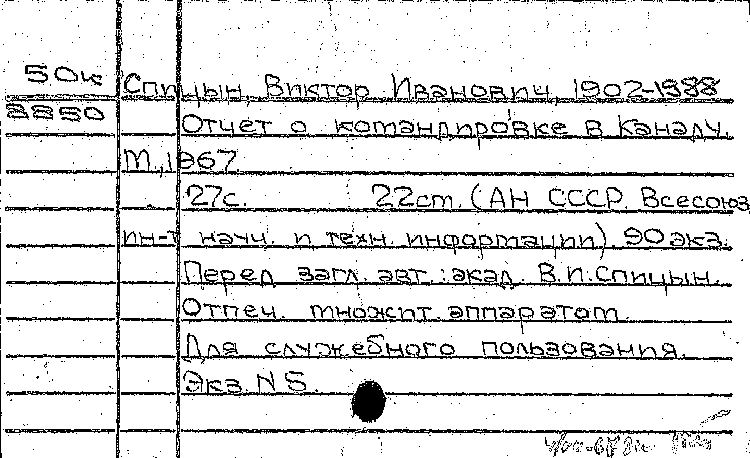 50к Спицын, Виктор Иванович, 1902-1988
3850
Отчет о командировке в Канаду.
М., 1967.
27с. 22cm. (АН СССР. Всесоюз.
ин-т науч. и техн. информации). 90экз.
Перед загл. авт.: акад. В.И. Спицын.
Отпеч. множит. аппаратом.
Для служебного пользования.
Экз. N 5.